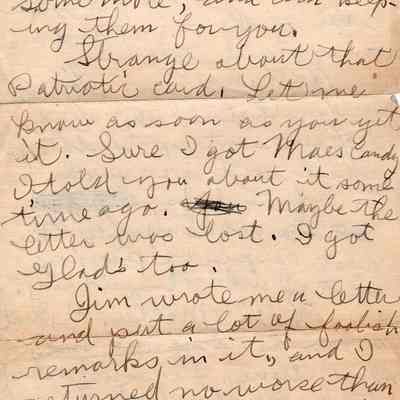 some more, and am keep-
ing them for you.
Strange about that
Patriotic card. Let me
know as soon as you get
it. Sure I got Maes Candy
I told you about it some
time ago. Maybe the
letter was lost. I got
Glad's too.
Jim wrote me a letter
and put a lot of foolish
remarks in it, and I
returned no worse than